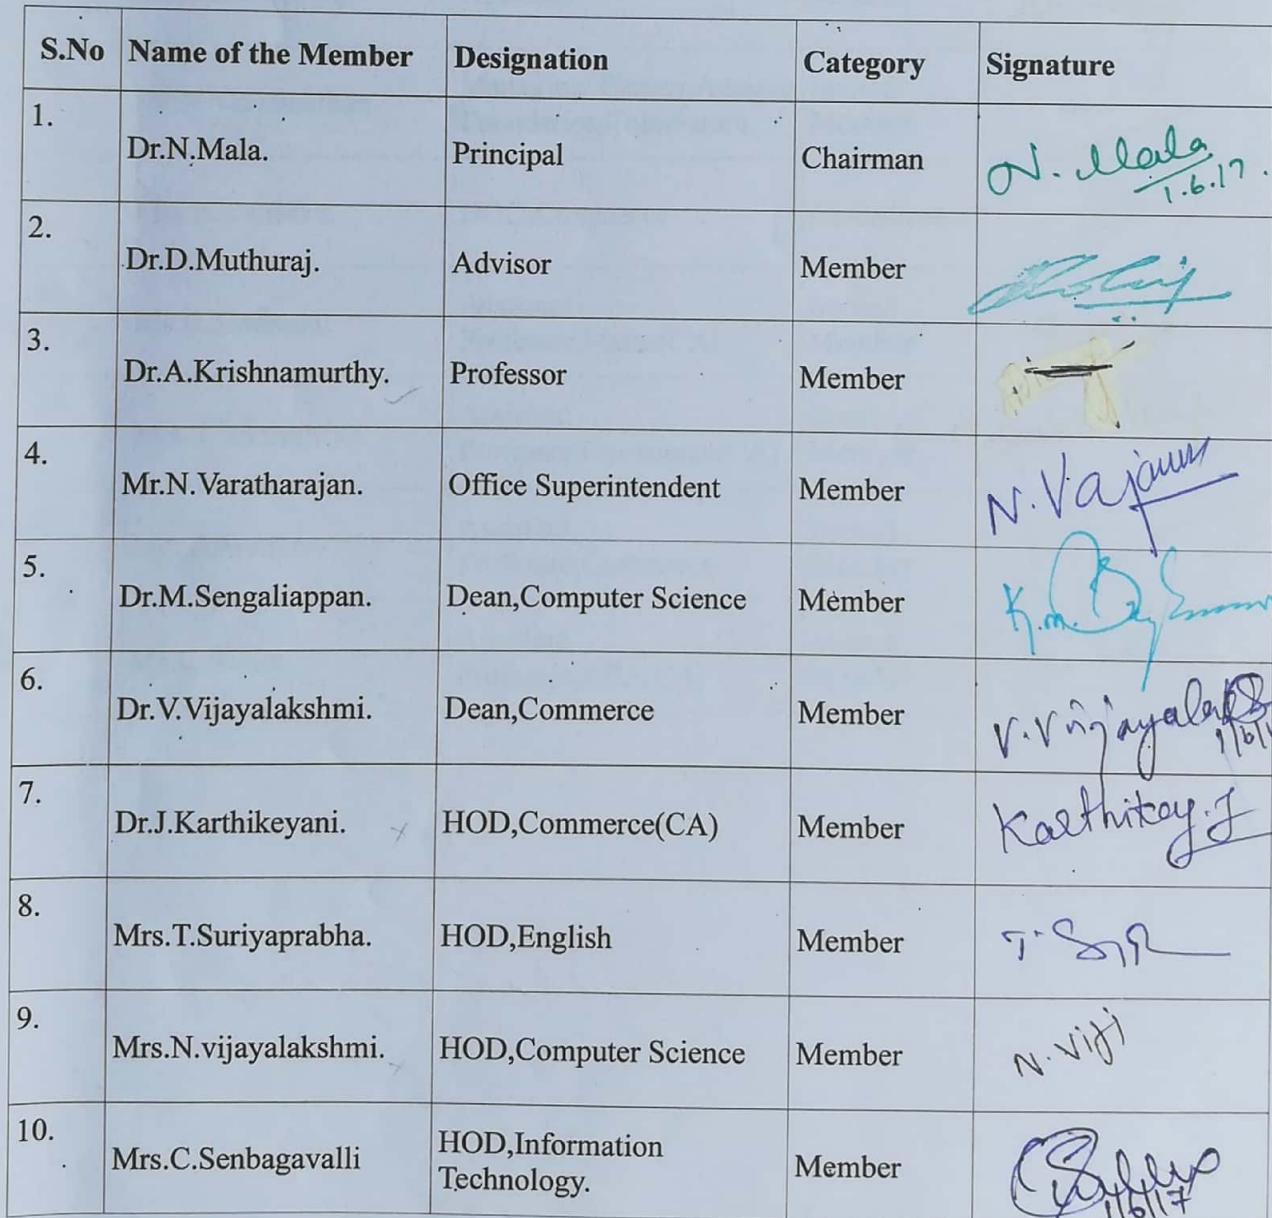 S.No Name of the Member Designation Category Signature
1. Dr.N.Mala. Principal Chairman N. Mala
1.6.17.
2. Dr.D.Muthuraj. Advisor Member
3. Dr.A.Krishnamurthy. Professor Member
4. Mr.N.Varatharajan. Office Superintendent Member
5. Dr.M.Sengaliappan. Dean,Computer Science Member
6. Dr.V.Vijayalakshmi. Dean,Commerce Member
7. Dr.J.Karthikeyani. HOD,Commerce(CA) Member Karthikey.J
8. Mrs.T.Suriyaprabha. HOD,English Member
9. Mrs.N.vijayalakshmi. HOD,Computer Science Member N.Viji
10. Mrs.C.Senbagavalli HOD,Information
Technology. Member
1/6/17